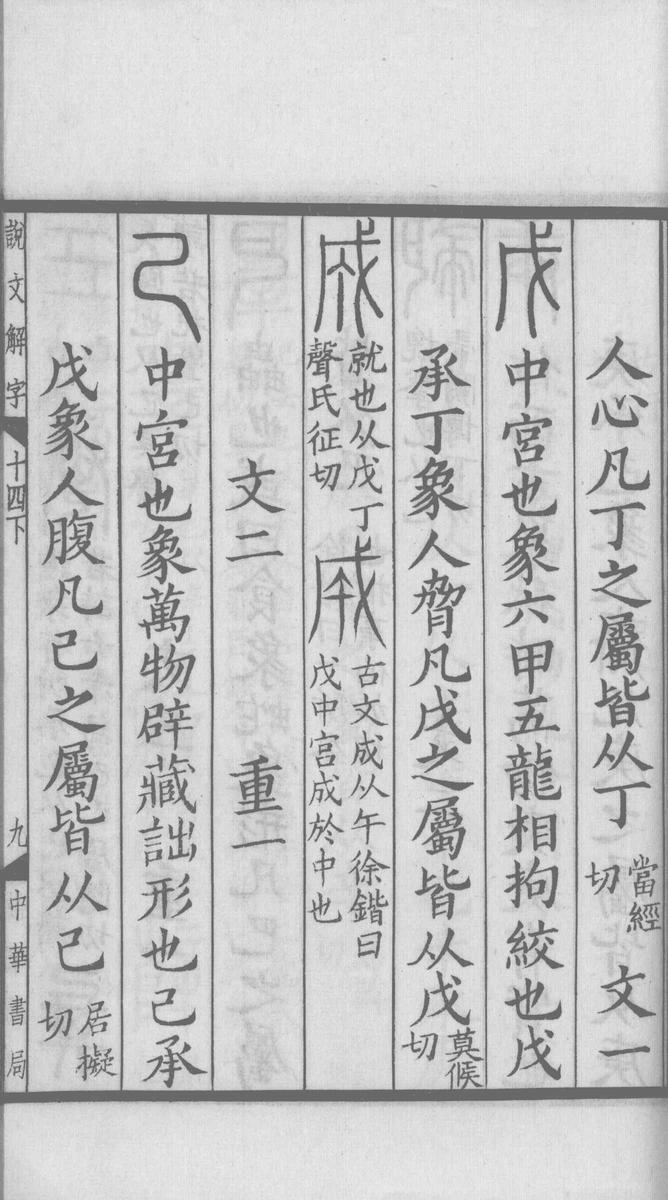 人心凡丁之屬皆从丁當經切 文一
戊中宮也象六甲五龍相拘絞也戊
承丁象人脅凡戊之屬皆从戊莫候切
成就也从戊丁聲氏征切 古文成从午徐鍇曰戊中宮成於中也
文二 重一
己中宮也象萬物辟藏詘形也己承
戊象人腹凡己之屬皆从己居擬切
說文解字 十四下 九 中華書局